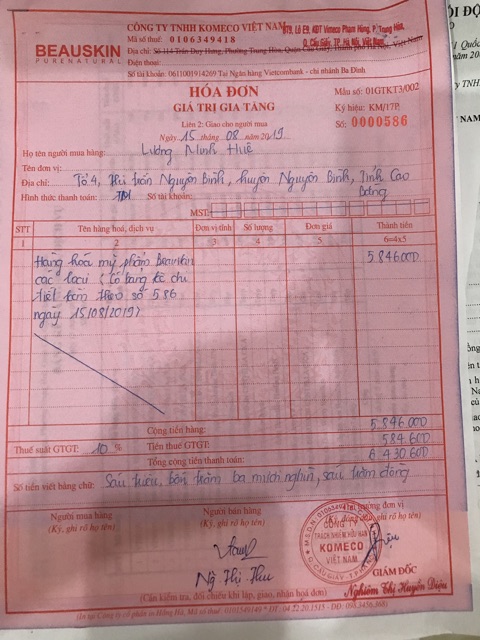 BEAUSKIN
PURENATURAL
CÔNG TY TNHH KOMECO VIỆT NAM
BT9, Lô E9, KĐT Vimeco Phạm Hùng, P. Trung Hòa,
Q. Cầu Giấy, TP. Hà Nội, Việt Nam
Mã số thuế: 0106349418
Địa chỉ: Số 114 Trần Duy Hưng, Phường Trung Hòa, Quận Cầu Giấy, Thành phố Hà Nội, Việt Nam
Điện thoại:
Số tài khoản: 0611001914269 Tại Ngân hàng Vietcombank - chi nhánh Ba Đình
HÓA ĐƠN
GIÁ TRỊ GIA TĂNG
Mẫu số: 01GTKT3/002
Ký hiệu: KM/17P
Liên 2: Giao cho người mua
Số: 0000586
Ngày 15 tháng 08 năm 2019
Họ tên người mua hàng: Lương Minh Huệ
Tên đơn vị:
Địa chỉ: Tổ 4, Thị trấn Nguyên Bình, huyện Nguyên Bình, Tỉnh Cao Bằng
Hình thức thanh toán: TM Số tài khoản:
MST:
STT Tên hàng hoá, dịch vụ Đơn vị tính Số lượng Đơn giá Thành tiền
1 2 3 4 5 6=4x5
Hàng hóa mỹ phẩm Beauskin 5 846 000
các loại (có bảng kê chi
tiết bán theo số 586
ngày 15/08/2019)
Cộng tiền hàng: 5 846 000
Thuế suất GTGT: 10 % Tiền thuế GTGT: 584 600
Tổng cộng tiền thanh toán: 6 430 600
Số tiền viết bằng chữ: Sáu triệu, bốn trăm ba mươi nghìn, sáu trăm đồng
Người mua hàng
(Ký, ghi rõ họ tên)
Người bán hàng
(Ký, ghi rõ họ tên)
trưởng đơn vị
đóng dấu, ghi rõ họ tên)
M.S.D.N: 0106349418
CÔNG TY
TRÁCH NHIỆM HỮU HẠN
KOMECO
VIỆT NAM
Q. CẦU GIẤY - T.P HÀ NỘI
Ngô Thị Thu
GIÁM ĐỐC
Nghiêm Thị Huyền Diệu
(Cần kiểm tra, đối chiếu khi lập, giao, nhận hoá đơn)